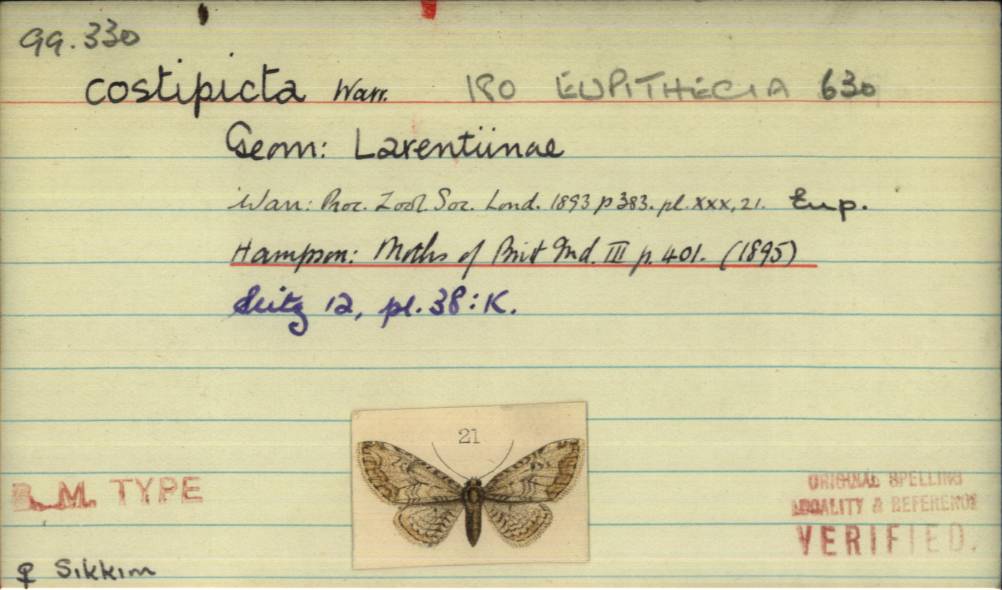 99.330
costipicta Warr. 180 EUPITHECIA 630
Geom: Larentiinae
Warr: Proc. Zool. Soc. Lond. 1893 p 383. pl. xxx, 21. Eup.
Hampson: Moths of Brit Ind. III p. 401. (1895)
Seitz 12, pl. 38: K.
21
B.M. TYPE
ORIGINAL SPELLING
LOCALITY & REFERENCE
VERIFIED.
♀ Sikkim